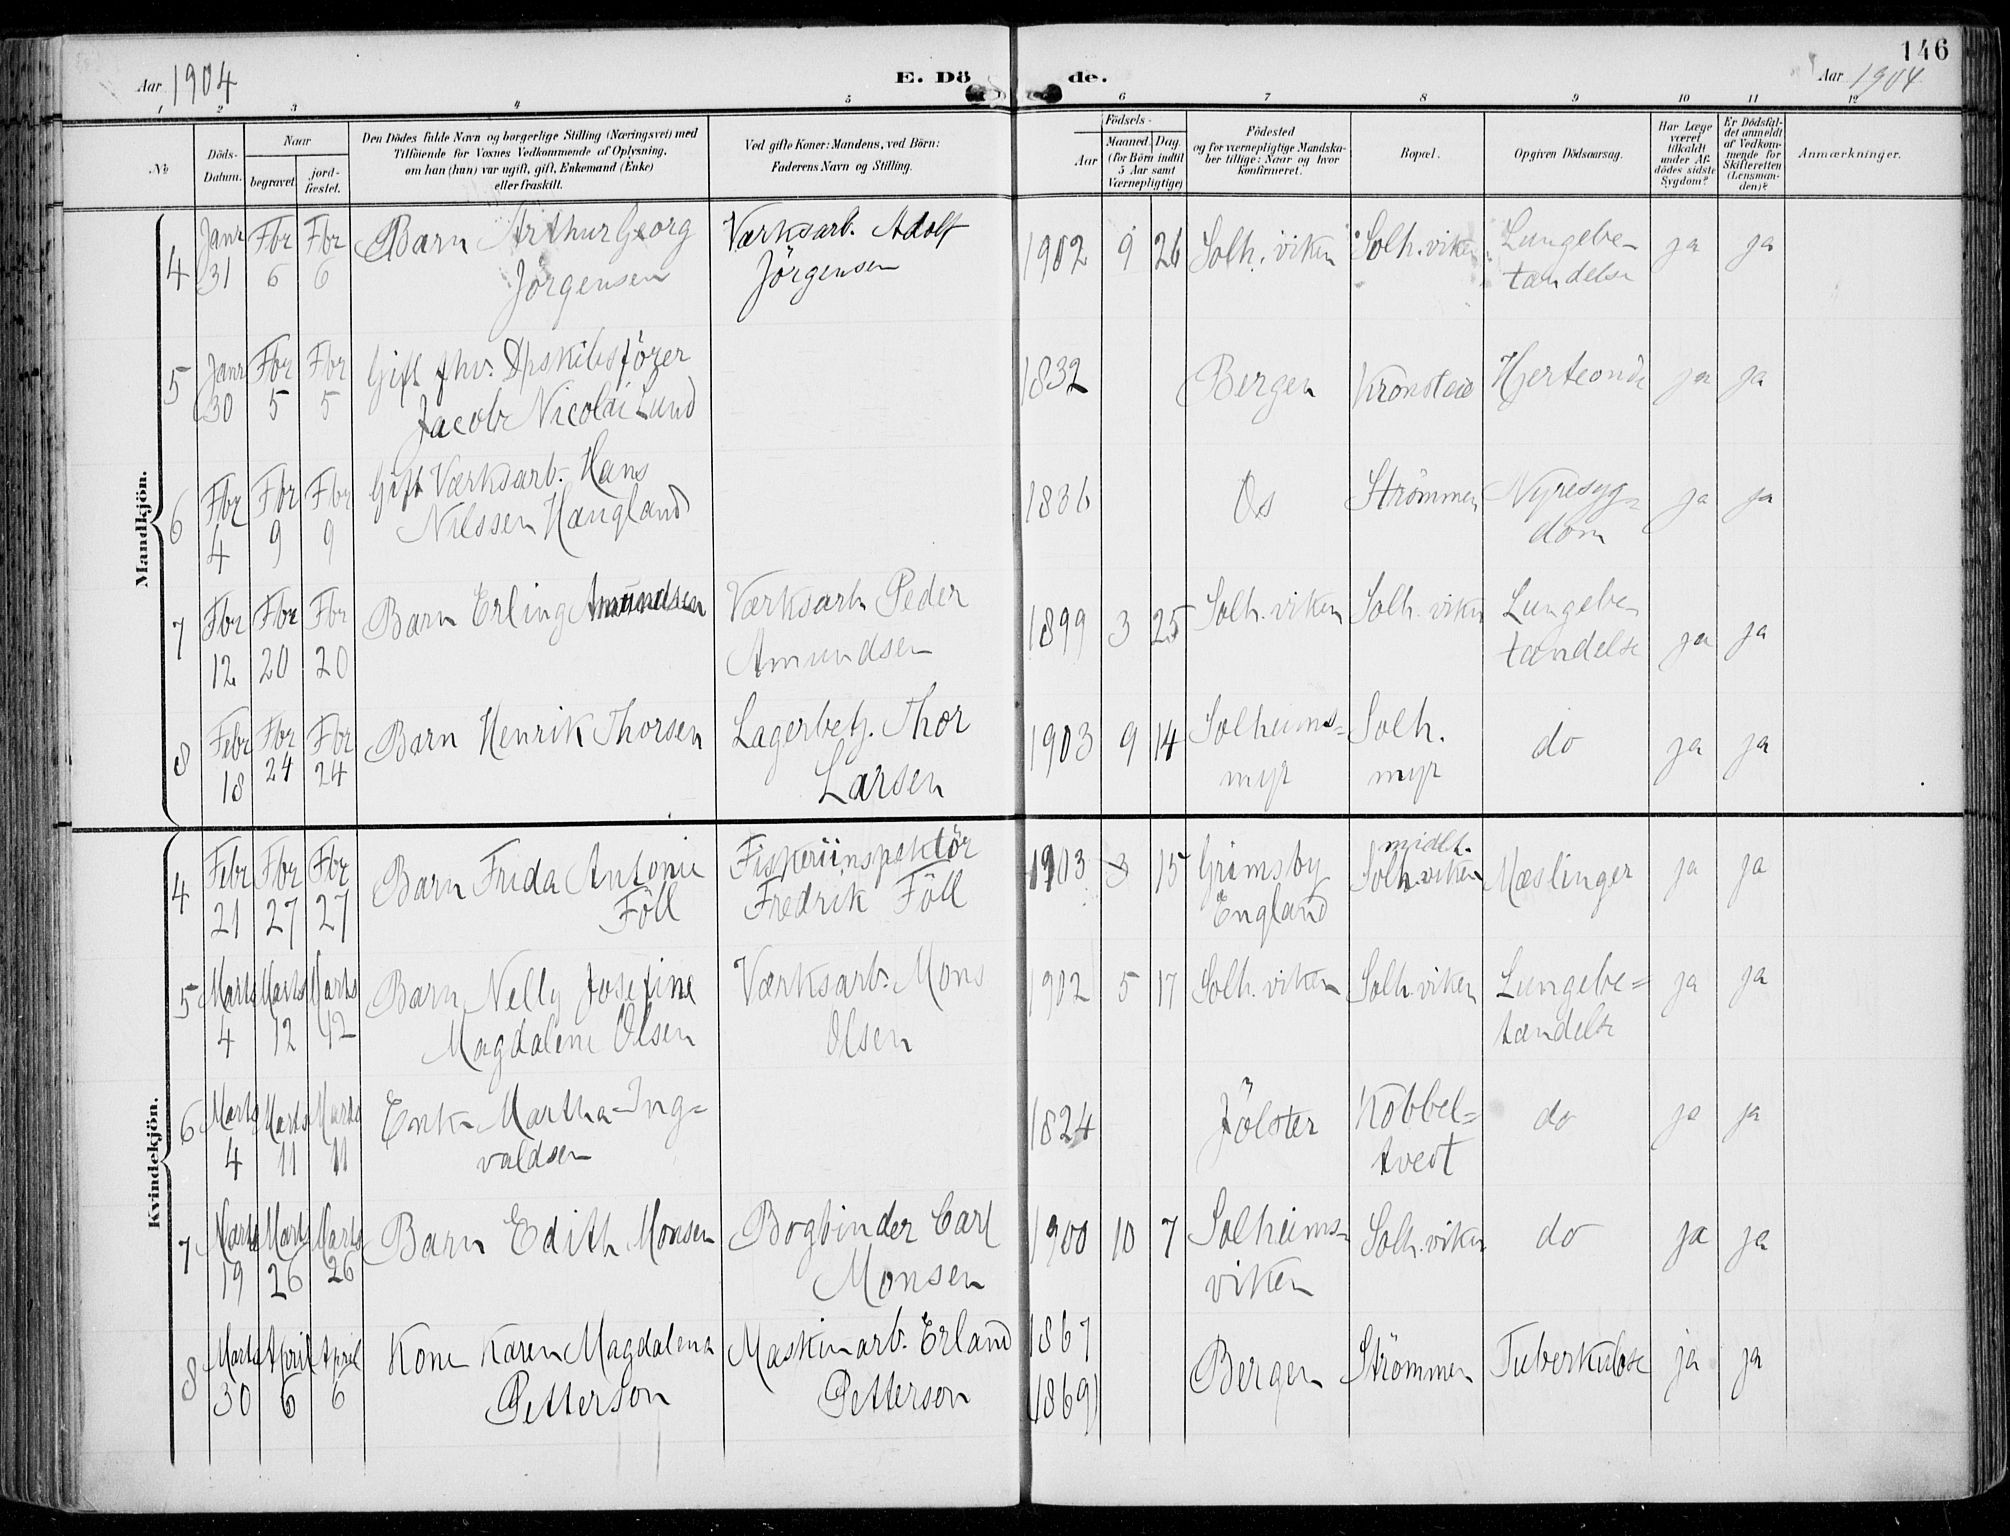 146
Aar 1904
E. Dö
de.
Aar 1904
1 2 3 4 5 6 7 8 9 10 11 12
No
Döds-
Datum.
Naar
begravet.
jord-
fæstet.
Den Dödes fulde Navn og borgerlige Stilling (Næringsvei) med
Tilföiende for Voxnes Vedkommende af Oplysning,
om han (hun) var ugift, gift, Enkemand (Enke)
eller fraskilt.
Ved gifte Koner: Mandens, ved Börn:
Faderens Navn og Stilling.
Födsels-
Aar
Maaned. Dag.
(for Börn indtil
5 Aar samt
Værnepligtige)
Födested
og for værnepligtige Mandska-
ber tillige: Naar og hvor
konfirmeret.
Bopæl.
Opgiven Dödsaarsag.
Har Læge
været
tilkaldt
under Af-
dödes sidste
Sygdom?
Er Dödsfal-
det anmeldt
af Vedkom-
mende for
Skifteretten
(Lensman-
den)?
Anmærkninger.
Mandkjön.
4 Janr Fbr Fbr Barn Arthur Georg Værksarb. Adolf 1902 9 26 Solh. viken Solh. viken Lungebe- ja ja
31 6 6 Jörgensen Jörgensen tændelse
5 Janr Fbr Fbr Gift fhv. Dpskibsförer 1832 Bergen Kronstad Hjerteonde ja ja
30 5 5 Jacob Nicolai Lund
6 Fbr Fbr Fbr Gift Værksarb. Hans 1836 Os Strömmen Nyresyg= ja ja
4 9 9 Nilssen Haugland dom
7 Fbr Fbr Fbr Barn Erling Amundsen Værksarb Peder 1899 3 25 Solh. viken Solh. viken Lungebe ja ja
12 20 20 Amundsen tændelse
8 Febr Fbr Fbr Barn Henrik Thorsen Lagerbetj. Thor 1903 9 14 Solheims= Solh. do ja ja
18 24 24 Larsen myr myr
Kvindekjön.
4 Febr Fbr Fbr Barn Frida Antonie Fiskeriinspektör 1903 3 15 Grimsby midlt. Solh. viken Mæslinger ja ja
21 27 27 Föll Fredrik Föll England
5 Marts Marts Marts Barn Nelly Josefine Værksarb. Mons 1902 5 17 Solh. viken Solh. viken Lungebe= ja ja
4 12 12 Magdalene Olsen Olsen tændelse
6 Marts Marts Marts Enke Martha Ing= 1824 Jölster Kobbel= do ja ja
4 11 11 valdsen tvedt
7 Marts Marts Marts Barn Edith Monsen Bogbinder Carl 1900 10 7 Solheims- Solh. viken do ja ja
19 26 26 Monsen viken
8 Marts April April Kone Karen Magdalena Maskinarb. Erland 1867 Bergen Strömmen Tuberkulose ja ja
30 6 6 Petterson Petterson (1869)